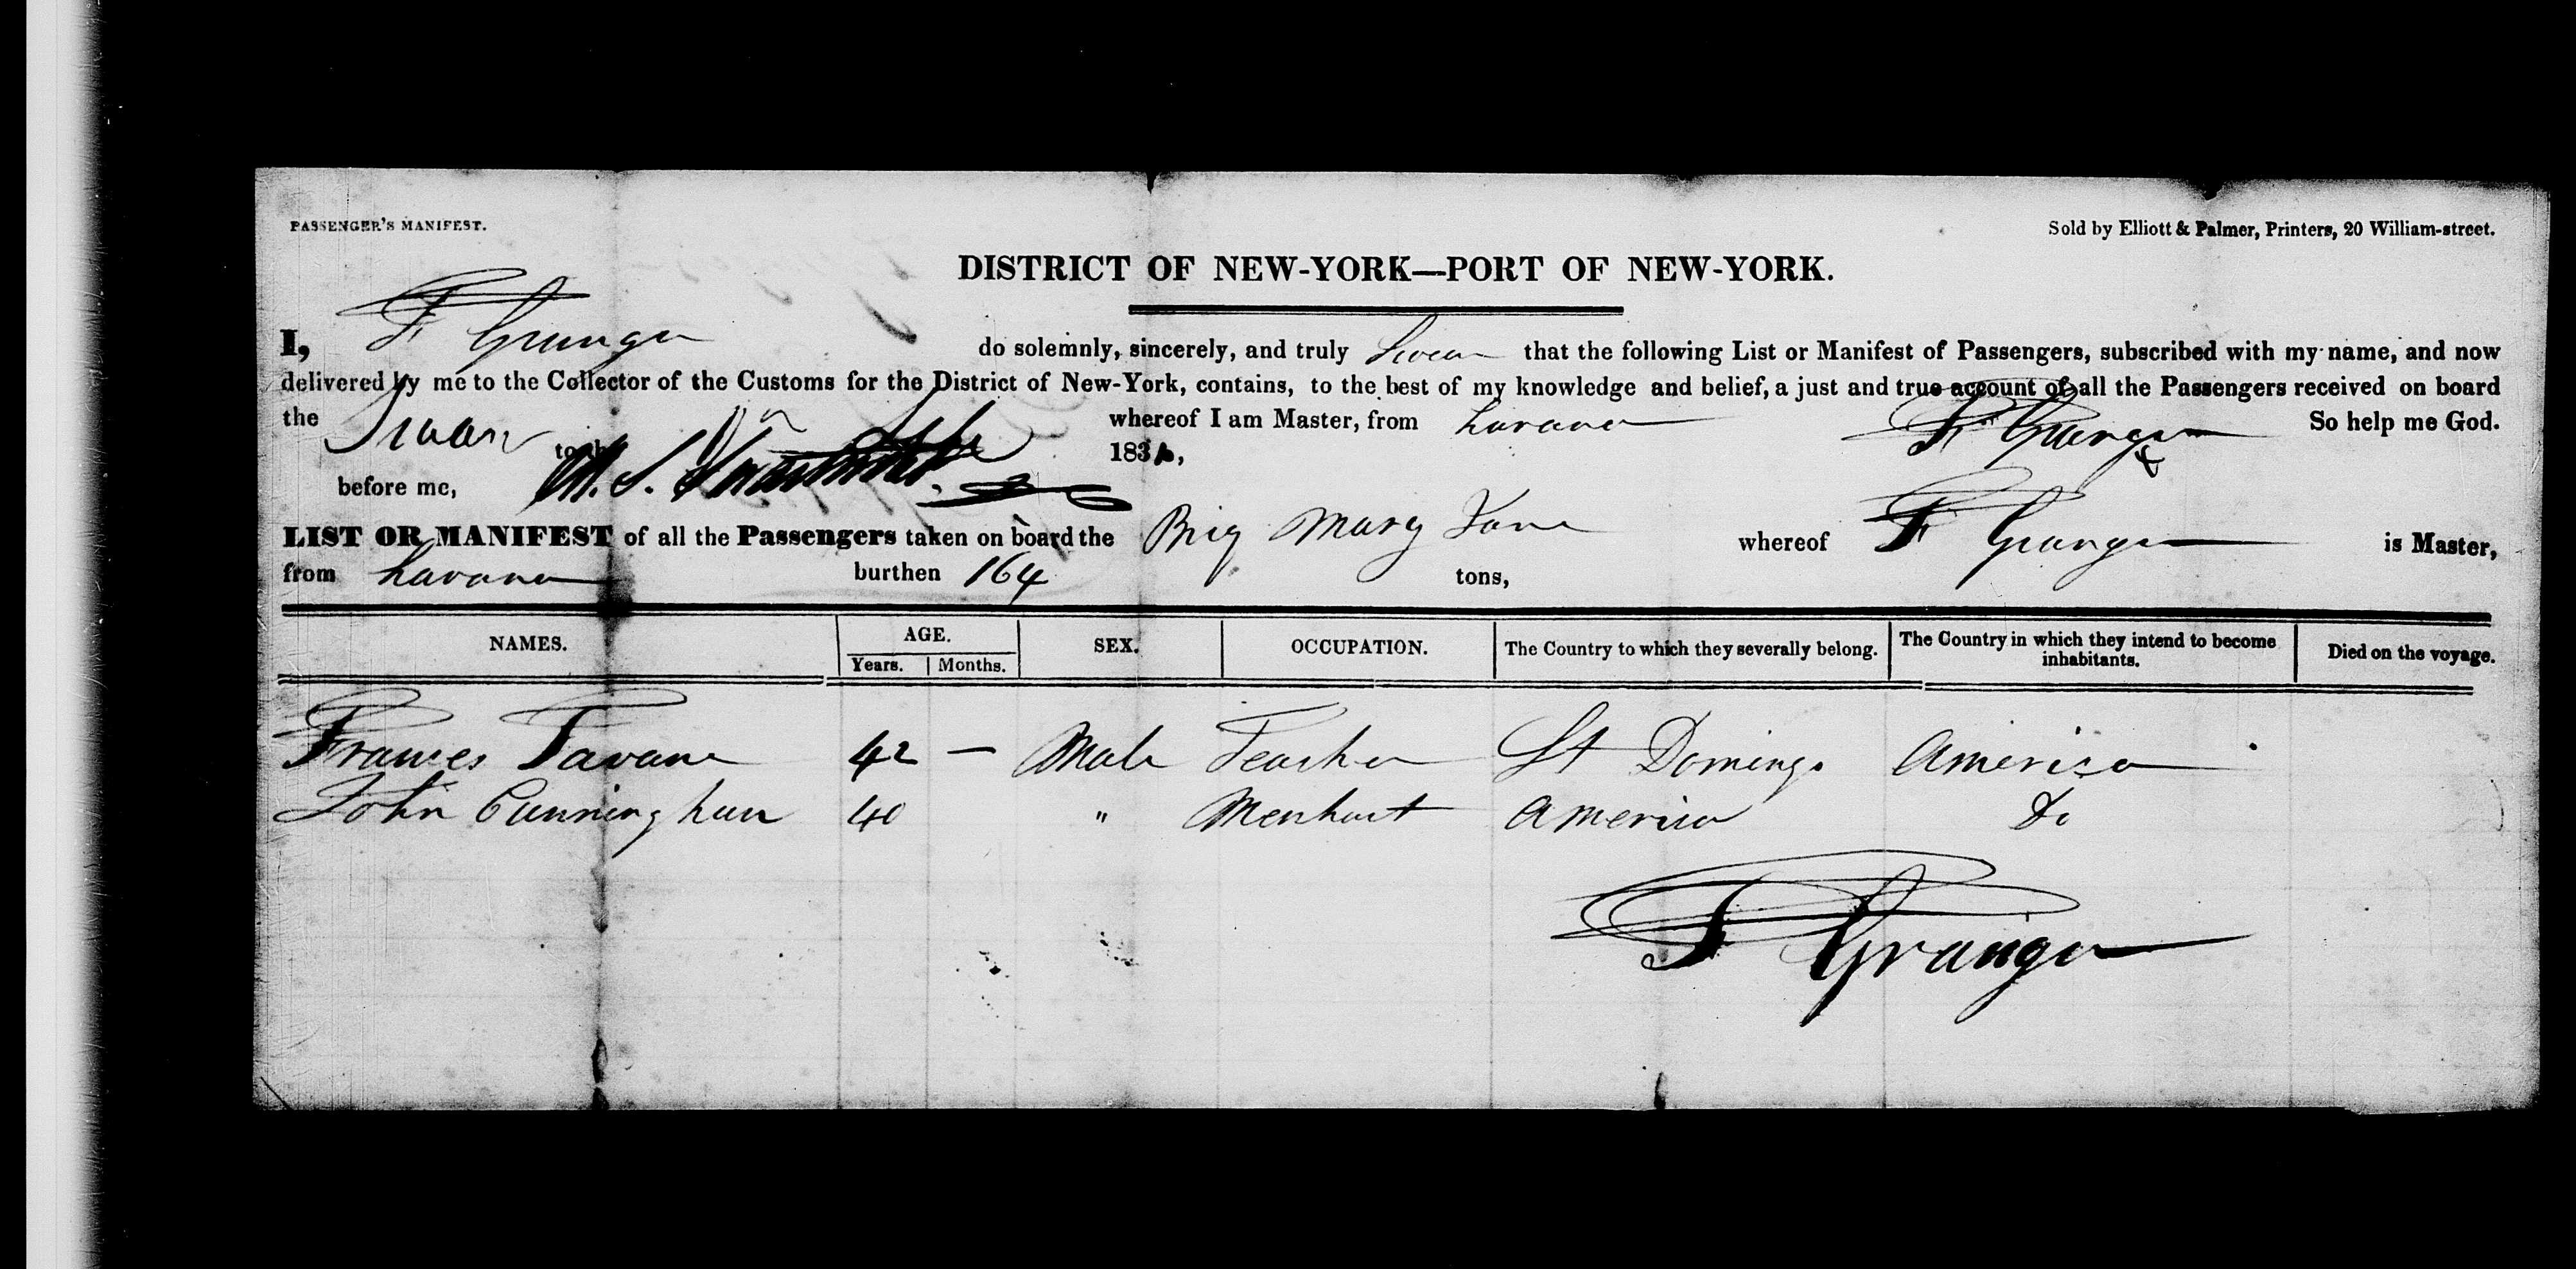 PASSENGER'S MANIFEST.
Sold by Elliott & Palmer, Printers, 20 William-street.
DISTRICT OF NEW-YORK—PORT OF NEW-YORK.
I, F Granger do solemnly, sincerely, and truly Swear that the following List or Manifest of Passengers, subscribed with my name, and now
delivered by me to the Collector of the Customs for the District of New-York, contains, to the best of my knowledge and belief, a just and true account of all the Passengers received on board
the whereof I am Master, from havana F Granger So help me God.
183
before me,
LIST OR MANIFEST of all the Passengers taken on board the Brig Mary Jane whereof F Granger is Master,
from havana burthen 164 tons,
NAMES. AGE. SEX. OCCUPATION. The Country to which they severally belong. The Country in which they intend to become inhabitants. Died on the voyage.
Years. Months.
Frances Tavane 42 — Male Teacher St Domingo America
John Cunningham 40 " Merchant America Do
F Granger